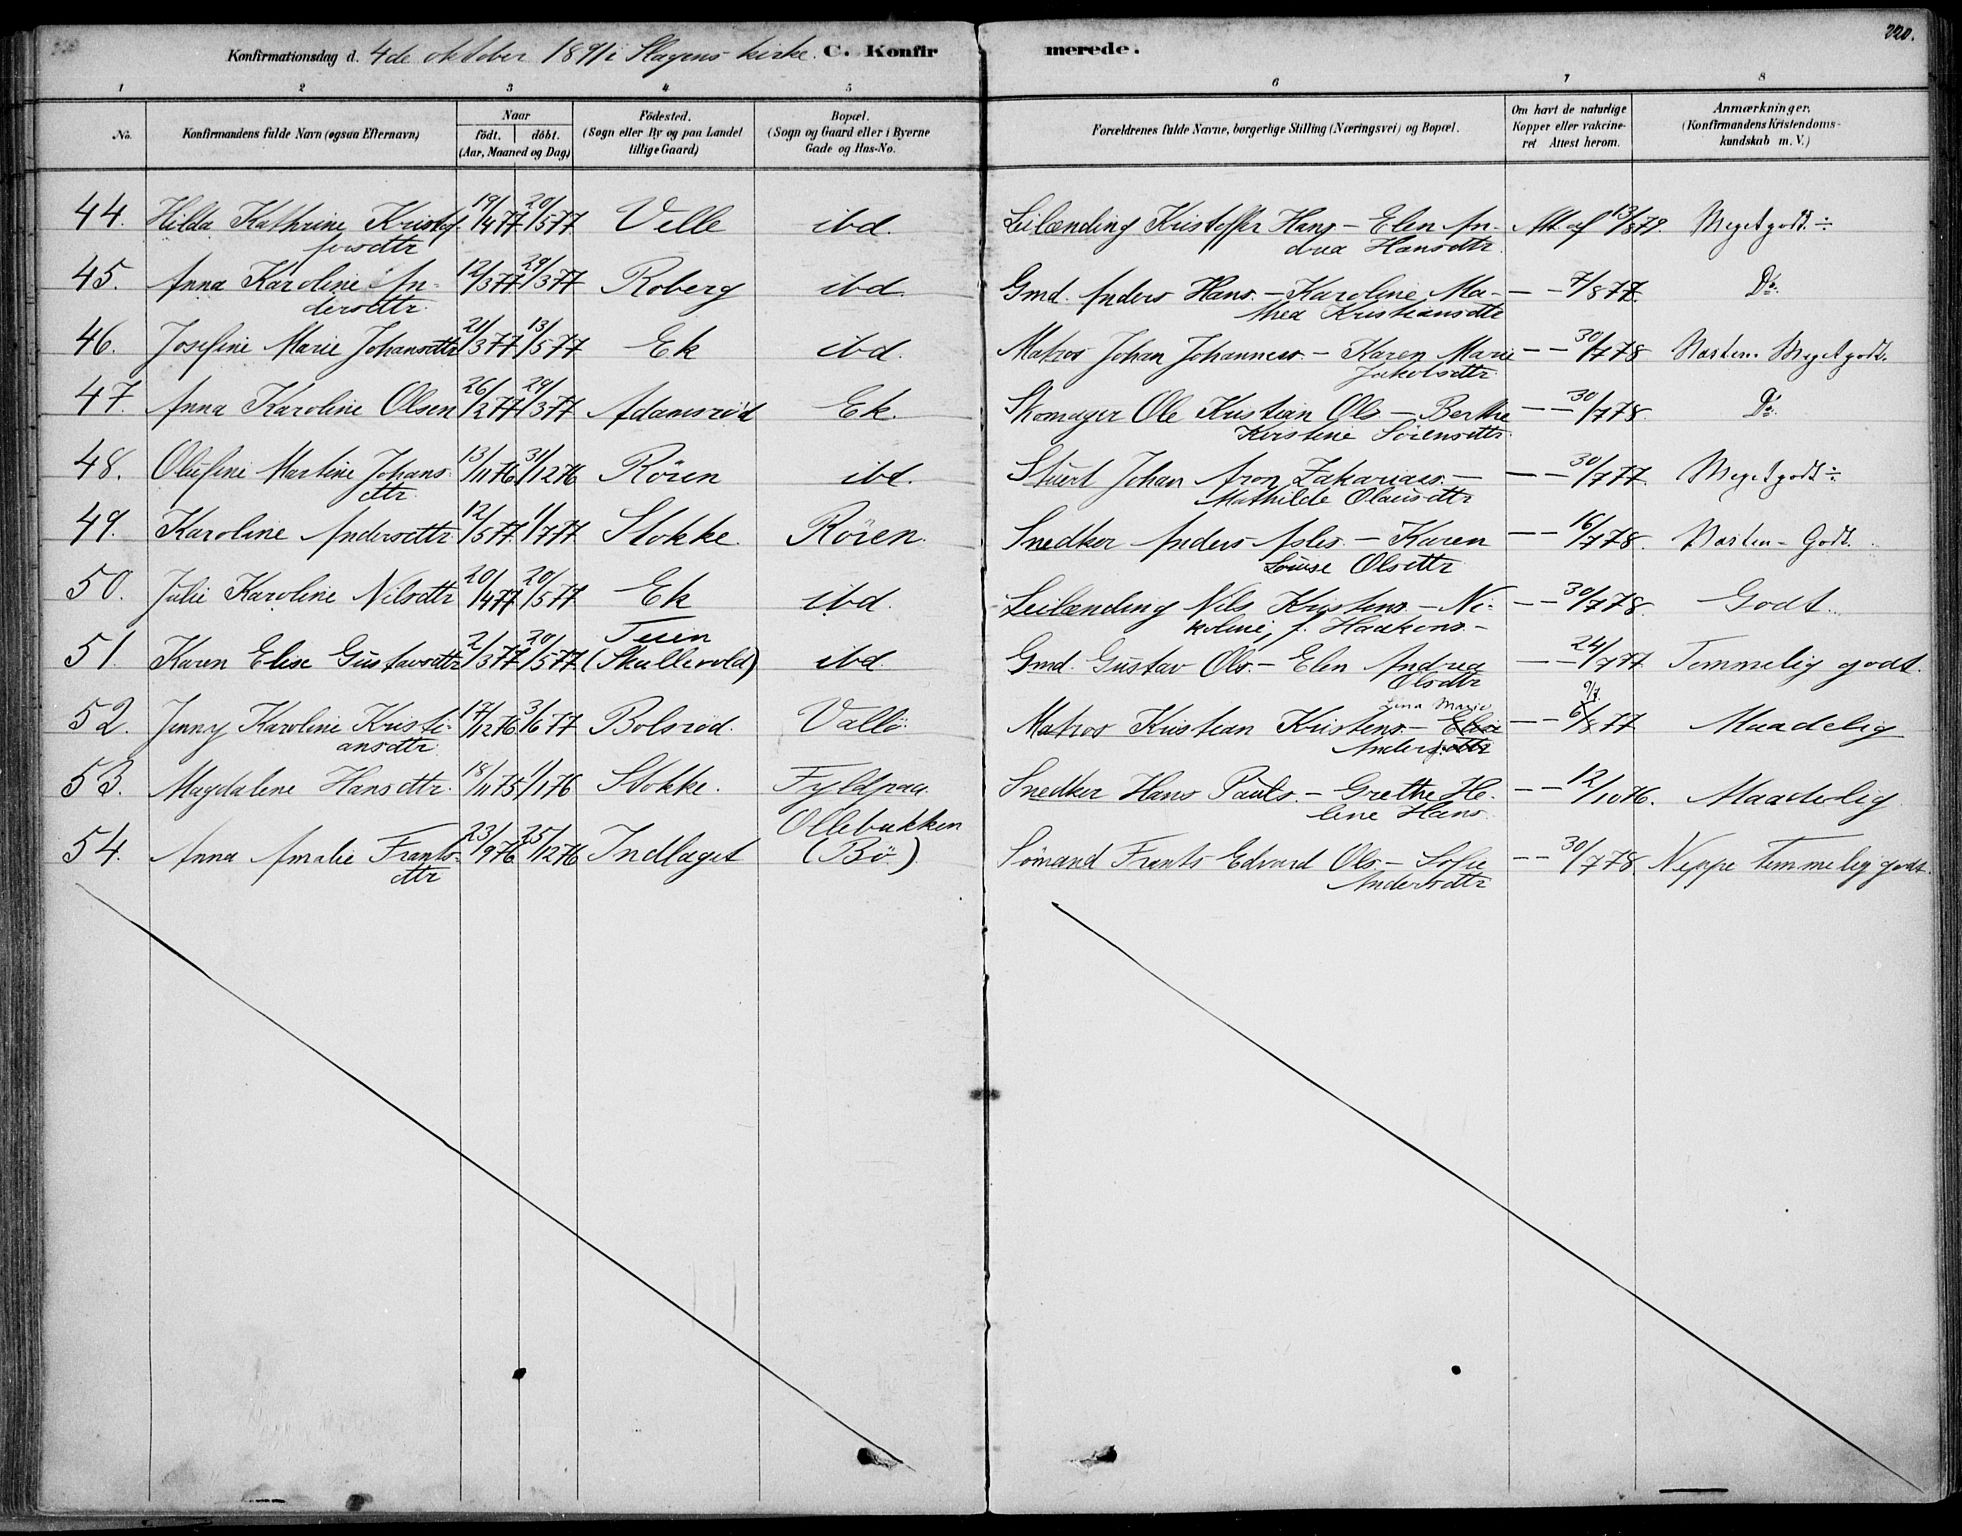 220.
Konfirmationsdag d. 4de oktober 1891 i Slagens kirke. C. Konfir merede.
1 2 3 4 5 6 7 8
No. Konfirmandens fulde Navn (ogsaa Efternavn) Naar födt. döbt. (Aar, Maaned og Dag) Födested. (Sogn eller By og paa Landet tillige Gaard) Bopæl. (Sogn og Gaard eller i Byerne Gade og Hus-No. Forældrenes fulde Navne, borgerlige Stilling (Næringsvei) og Bopæl. Om havt de naturlige Kopper eller vakcineret Attest herom. Anmærkninger. (Konfirmandens Kristendomskundskab m. V.)
44. Hilda Kathrine Kristof- 19/4 77 20/5 77 Velle ibd. Leilænding Kristoffer Hans. - Elen An- Att. af 13/8 79. Meget godt. ÷
fersdtr drea Hansdtr.
45. Anna Karoline An- 12/3 77 29/3 77 Roberg ibd. Gmd. Anders Hans. - Karoline Ma- — — 7/8 77. Do.
dersdtr. thea Kristiansdtr
46. Josefine Marie Johansdtr 21/3 77 13/5 77 Ek ibd. Matros Johan Johanness. - Karen Marie — — 30/7 78 Næsten Meget godt.
Jakobsdtr.
47. Anna Karoline Olsen 26/2 77 29/3 77 Adamsrød Ek. Skomager Ole Kristian Ols. - Berthe — — 30/7 78. Do.
Kristine Sörensdtr.
48. Olufine Martine Johans- 13/11 76 31/12 76 Rören ibd. Stuert Johan Aron Zakariass. - — — 30/7 77. Meget godt ÷
dtr. Mathilde Olausdtr
49. Karoline Andersdtr. 12/5 77. 1/7 77 Stokke. Rören. Snedker Anders Asles. - Karen — — 16/7 78. Næsten - Godt.
Louise Olsdtr
50. Julie Karoline Nilsdtr 20/4 77 20/5 77 Ek ibd. Leilænding Nils Kristens. - Ni- — — 30/7 78. Godt.
koline, f. Haakons. -
51. Karen Elise Gustavsdtr 2/3 77 20/5 77 Tuen (Skallevold) ibd. Gmd. Gustav Ols. - Elen Andrea — — 24/7 77 Temmelig godt.
Olsdtr
52. Jenny Karoline Kristi- 17/12 76 3/6 77 Bolsrød. Vallö Matros Kristian Kristens. - Elise Lina Marie — — 6/8 77 9/7. Maadelig
ansdtr. Andersdtr
53. Magdalene Hansdtr. 18/11 75 1/1 76 Stokke. Fyldpaa. Snedker Hans Pauls. - Grethe He- — — 12/10 76. Maadelig
lene Hans.
54. Anna Amalie Frants- 23/9 76 25/12 76 Indlaget Ollebakken (Bö) Sömand Frants Edvard Ols. - Sofie — — 30/7 78. Neppe Temmelig godt.
dtr Andersdtr